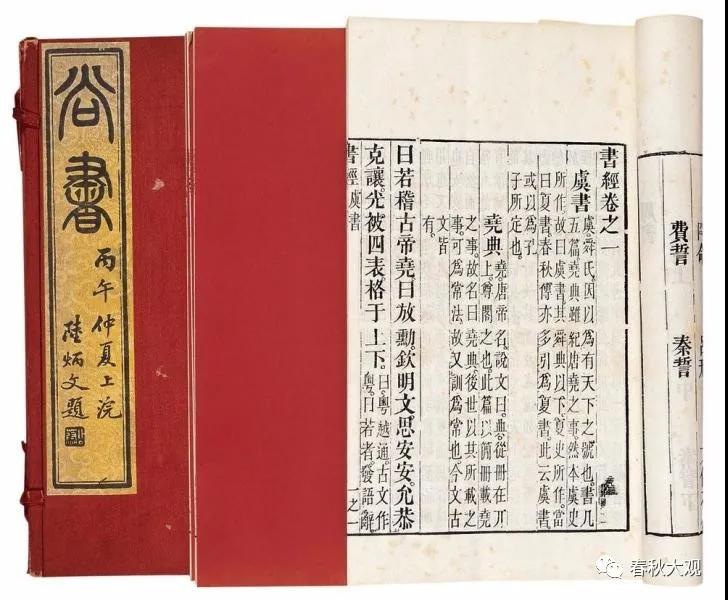 尚書
丙午仲夏上浣
陸炳文題
費誓 秦誓
書經卷之一
虞書
虞舜氏因以為有天下之號也書凡
五篇堯典雖紀唐堯之事然本虞史
所作故曰虞書其舜典以下夏史所作當
曰夏書春秋傳亦多引為夏書此云虞書
或以為孔
子所定也
堯典
堯唐帝名說文曰典從冊在丌
上尊閣之也此篇以簡冊載堯
之事故名曰堯典後世以其所載之
事可為常法故又訓為常也今文古
文皆
有
曰若稽古帝堯曰放勳欽明文思安安允恭
克讓光被四表格于上下
曰粵越通古文作
粵曰若者發語辭
書經虞書 一之一
春秋大观